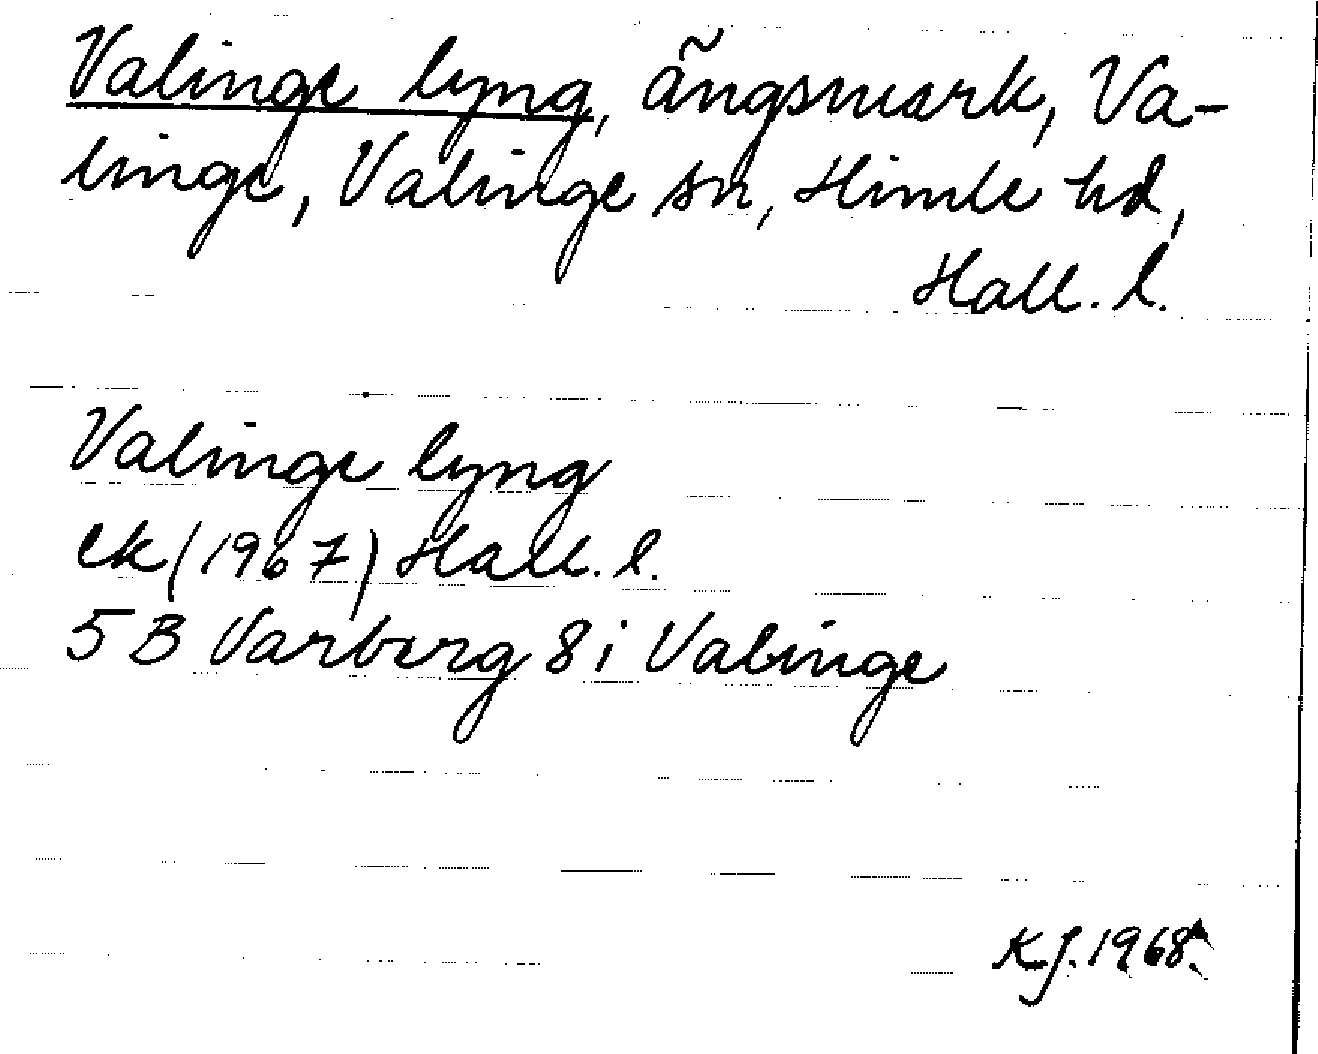 Valinge lyng, ängsmark, Va-
linge, Valinge sn, Himle hd,
Hall. l.
Valinge lyng
ek (1967) Hall. l.
5 B Varberg 8 i Valinge
KJ. 1968.